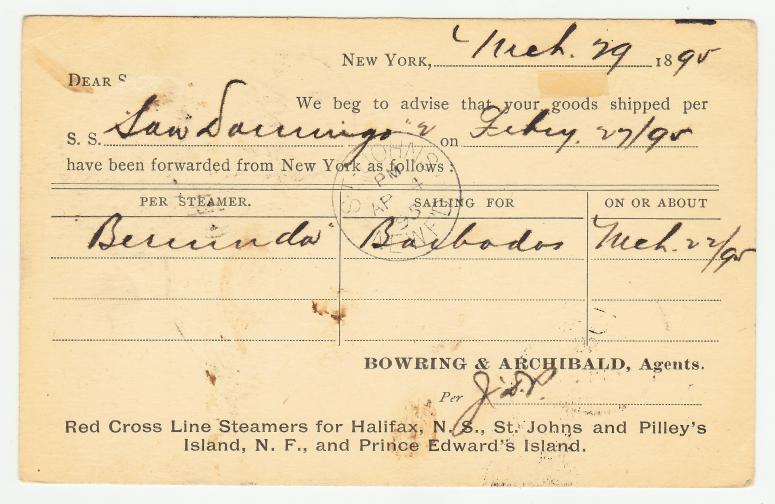 New York, Mch. 29 1895
Dear S
We beg to advise that your goods shipped per
S. S. San Domingo on Feby. 27/95
have been forwarded from New York as follows:
PER STEAMER. SAILING FOR ON OR ABOUT
Bermuda Barbados Mch. 22/95
ST. JOHN'S
PM
AP 4
95
NEWF'D
BOWRING & ARCHIBALD, Agents.
Per
Red Cross Line Steamers for Halifax, N. S., St. Johns and Pilley's
Island, N. F., and Prince Edward's Island.